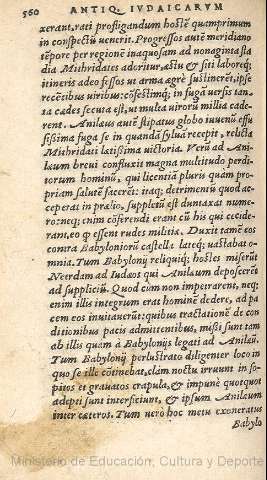 560 ANTIQ. IVDAICARVM
xerant, rati profligandum hostē quamprimum
in conspectū venerit. Progressos autē meridiano
tēpore per regionē inaquosam ad nonaginta sta
dia Mithridates adoritur, astu & siti laboreq́;
itineris adeo fessos ut arma ægre sustinerēt, ipse
recētibus uiribus: cōsestimq́; in fugā uersis tan
ta cædes secuta est, ut multa uirorū millia cade
rent. Anilæus autē stipatus globo iuuenū effu
sissima fuga se in quandā syluā recepit, relicta
Mithridati lætissima uictoria. Verū ad Ani
læum breui confluxit magna multitudo perdi
torum hominū, qui licentiā pluris quàm pro
priam salutē facerēt: itaq; detrimentū quod ac-
ceperat in prælio, suppletū est duntaxat nume-
ro: neq; enim cōferendi erant cū his qui cecide-
rant, eo q̃ essent rudes militiæ. Duxit tamē eos
contra Babyloniorū castella lateq́; uastabat o-
mnia. Tum Babylonij reliquiq́; hostes miserūt
Neerdam ad Iudæos qui Anilæum deposcerēt
ad suppliciū. Quod cùm non impetrarent, neq;
enim illis integrum erat hominē dedere, ad pa
cem eos inuitauerūt: quibus tractationē de con
ditionibus pacis admittentibus, missi sunt tam
ab illis quàm à Babylonijs legati ad Anilæū.
Tum Babylonij perlustrato diligenter loco in
quo se ille cōtinebat, clàm noctu irruunt in so-
pitos et grauatos crapula, & impunè quotquot
adepti sunt interficiunt, & ipsum Anilæum
inter cæteros. Tum uerò hoc metu exoneratus
Babylo
Ministerio de Educación, Cultura y Deporte